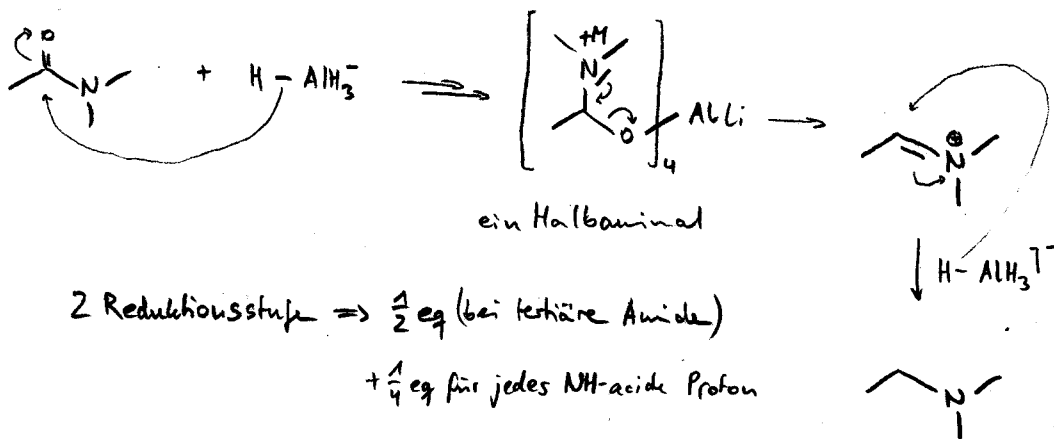 O
N
+ H - AlH₃⁻
+M
N
O
4
AlLi
⊕
N
ein Halbaminal
H - AlH₃ ]⁻
2 Reduktionsstufen => 1/2 eq (bei tertiäre Amiden)
+ 1/4 eq für jedes NH-acide Proton
N